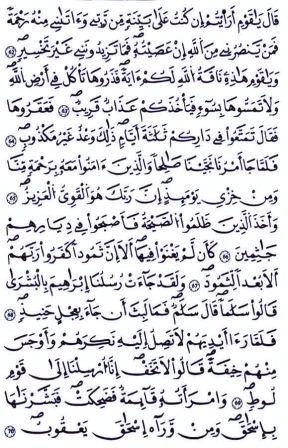 قَالَ يَٰقَوْمِ أَرَٰيْتُمُۥٓ إِن كُنتُ عَلَىٰ بَيِّنَةٍ مِّن رَّبِّي وَءَاتَىٰنِي مِنْهُ رَحْمَةً
فَمَنْ يَّنصُرُنِي مِنَ اَللَّهِ إِنْ عَصَيْتُهُۥ فَمَا تَزِيدُونَنِي غَيْرَ تَخْسِيرٍ ٦٢
وَيَٰقَوْمِ هَٰذِهِۦ نَاقَةُ اُللَّهِ لَكُمُۥٓ ءَايَةً فَذَرُوهَا تَاكُلْ فِےٓ أَرْضِ اِللَّهِ
وَلَا تَمَسُّوهَا بِسُوٓءٍ فَيَاخُذَكُمْ عَذَابٌ قَرِيبٌ ٦٣ فَعَقَرُوهَا
فَقَالَ تَمَتَّعُوا فِے دَارِكُمْ ثَلَٰثَةَ أَيَّامٍ ذَٰلِكَ وَعْدٌ غَيْرُ مَكْذُوبٍ ٦٤
فَلَمَّا جَآءَ امْرُنَا نَجَّيْنَا صَٰلِحًا وَالَّذِينَ ءَامَنُوا مَعَهُۥ بِرَحْمَةٍ مِّنَّا
وَمِنْ خِزْيِ يَوْمَئِذٍ إِنَّ رَبَّكَ هُوَ اَلْقَوِيُّ اُلْعَزِيزُ ٦٥
وَأَخَذَ اَلَّذِينَ ظَلَمُوا اُلصَّيْحَةُ فَأَصْبَحُوا فِے دِيَٰرِهِمْ
جَٰثِمِينَ ٦٦ كَأَن لَّمْ يَغْنَوْا فِيهَآ أَلَآ إِنَّ ثَمُودًا كَفَرُوا رَبَّهُمُۥٓ
أَلَا بُعْدًا لِّثَمُودَ ٦٧ وَلَقَدْ جَآءَتْ رُسُلُنَآ إِبْرَٰهِيمَ بِالْبُشْرَىٰ
قَالُوا سَلَٰمًا قَالَ سَلَٰمٌ فَمَا لَبِثَ أَن جَآءَ بِعِجْلٍ حَنِيذٍ ٦٨
فَلَمَّا رَءَآ أَيْدِيَهُمْ لَا تَصِلُ إِلَيْهِ نَكِرَهُمْ وَأَوْجَسَ
مِنْهُمْ خِيفَةً قَالُوا لَا تَخَفِ اِنَّآ أُرْسِلْنَآ إِلَىٰ قَوْمِ
لُوطٍ ٦٩ وَامْرَأَتُهُۥ قَآئِمَةٌ فَضَحِكَتْ فَبَشَّرْنَٰهَا
بِإِسْحَٰقَ وَمِنْ وَّرَآءِ اِسْحَٰقَ يَعْقُوبُ ٧٠